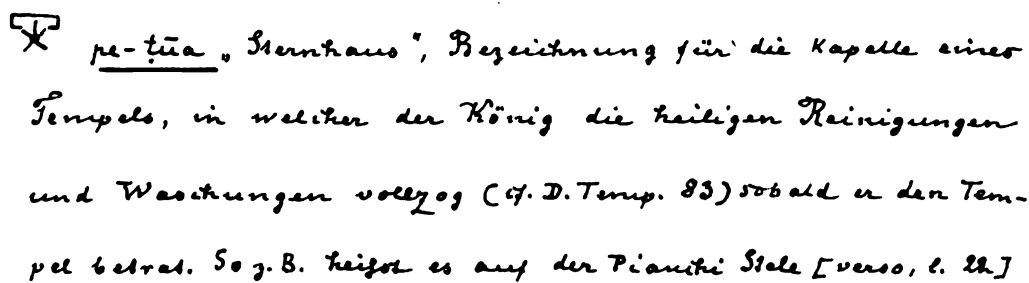 pe-ṭūa „Sternhaus“, Bezeichnung für die Kapelle eines
Tempels, in welcher der König die heiligen Reinigungen
und Waschungen vollzog (cf. D. Temp. 83) sobald er den Tem-
pel betrat. So z. B. heißt es auf der Pianchi Stele [verso, l. 22]